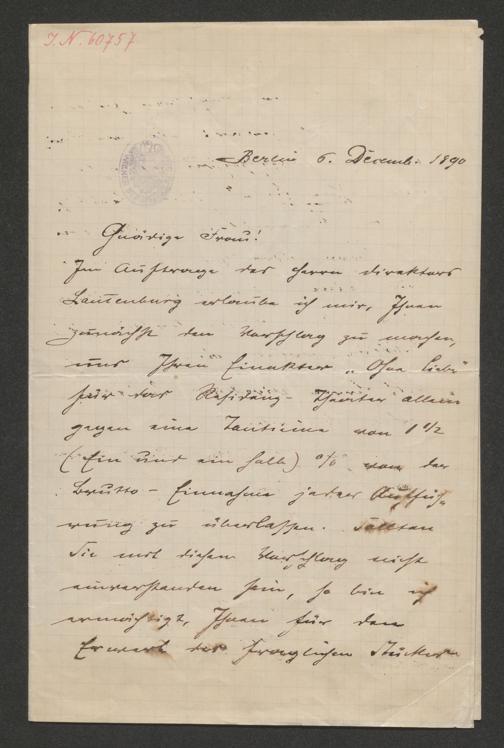 I. N. 60757
Berlin 6. Decemb. 1890
Gnädige Frau!
Im Auftrage des Herrn Direktors
Lautenburg erlaube ich mir, Ihnen
zunächst den Vorschlag zu machen,
uns Ihren Einakter „Ohne Liebe“
für das Residenz-Theater allein
gegen eine Tantieme von 1 1/2
(Ein und ein halb) % von der
Brutto-Einnahme jeder Auffüh-
rung zu überlassen. Sollten
Sie mit diesem Vorschlag nicht
einverstanden sein, so bin ich
ermächtigt, Ihnen für den
Erwerb des fraglichen Stückes